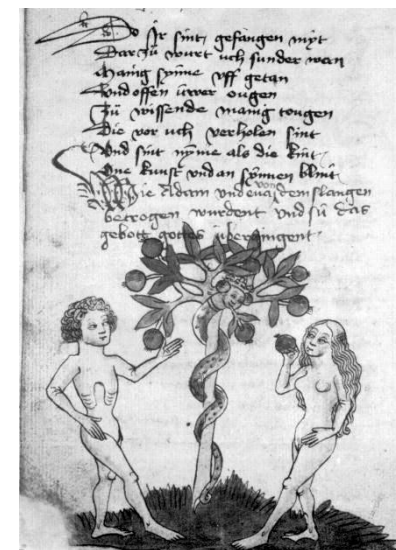 So Ir sint gefangen myt
Dar zů wurt uch sunder wan
Manig synne uff getan
Und offen uwer ougen
Zů wissende manig tougen
Die vor uch verholen sint
Und sint nyme als die kint
One kunst und an synnen blint
Wie Adam und eua von dem slangen
betrogen wurdent und sü das
gebott gottes übergingent